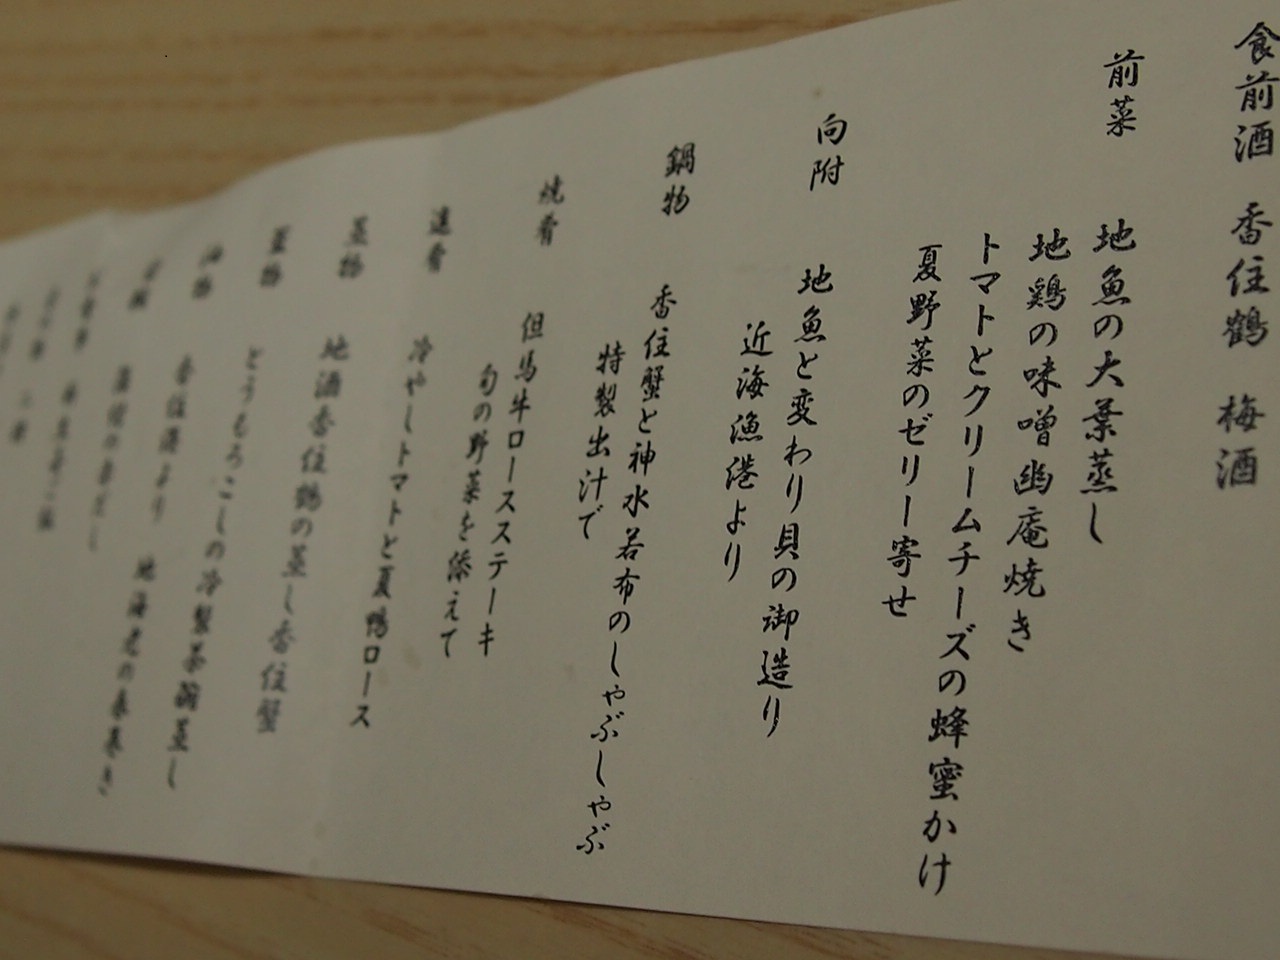 食前酒 香住鶴 梅酒
前菜 地魚の大葉蒸し
地鶏の味噌幽庵焼き
トマトとクリームチーズの蜂蜜かけ
夏野菜のゼリー寄せ
向附 地魚と変わり貝の御造り
近海漁港より
鍋物 香住蟹と神水若布のしゃぶしゃぶ
特製出汁で
焼肴 但馬牛ロースステーキ
旬の野菜を添えて
進肴 冷やしトマトと夏鴨ロース
蒸物 地酒香住鶴の蒸し香住蟹
蓋物 とうもろこしの冷製茶碗蒸し
油物 香住港より 地海老の春巻き